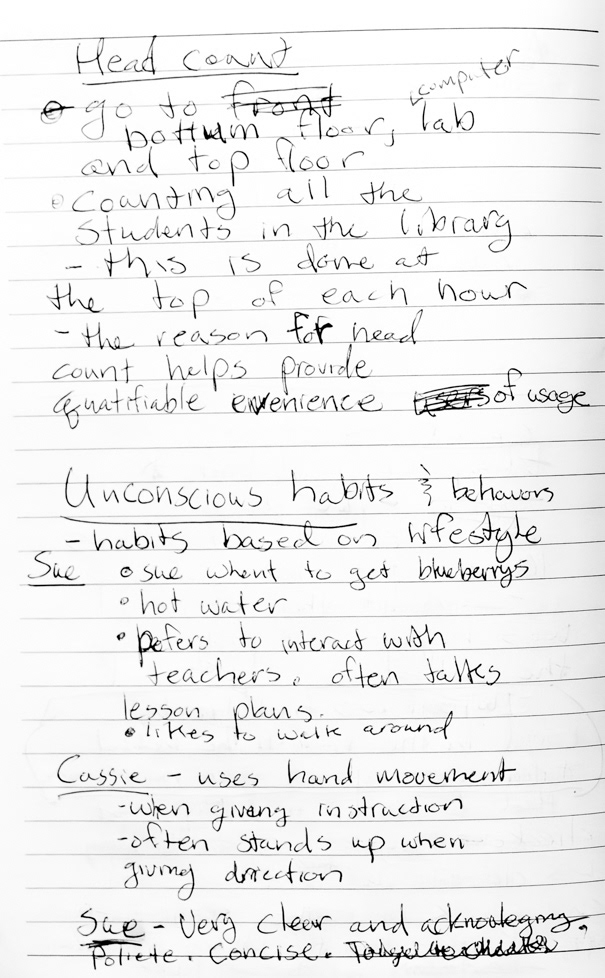 Head count
go to front computer
bottum floor, lab
and top floor
Counting all the
Students in the library
- this is done at
the top of each hour
- the reason for head
count helps provide
quatifiable evenience of usage
Unconscious habits & behavors
- habits based on lifestyle
Sue • sue whent to get blueberrys
• hot water
• pefers to interact with
teachers. often talks
lesson plans.
• likes to walk around
Cassie - uses hand movement
- when giving instruction
- often stands up when
giving direction
Sue - Very clear and acknowleging,
Poliete. Concise.